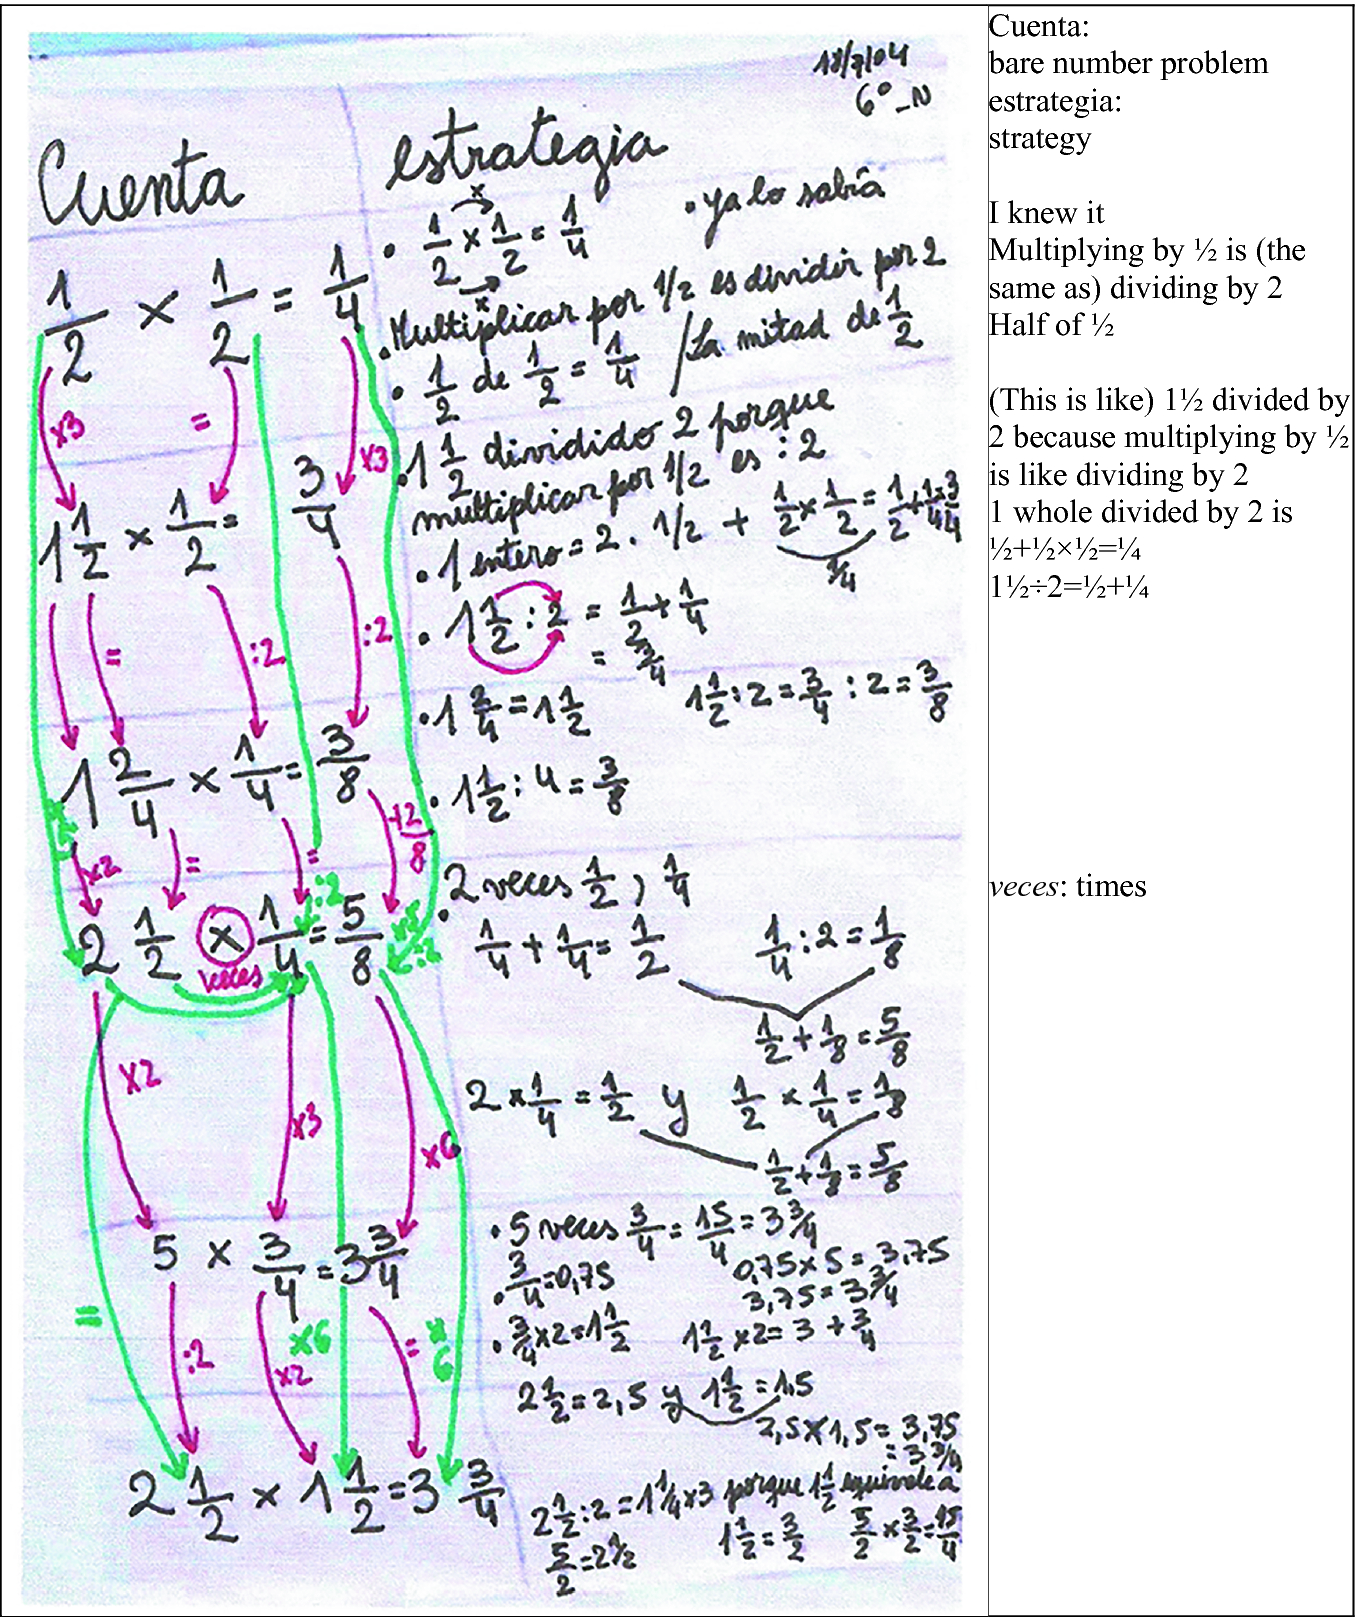 18/7/04
6º_N
Cuenta
estrategia
1/2 × 1/2 = 1/4
×3
=
×3
1 1/2 × 1/2 = 3/4
=
:2
:2
1 2/4 × 1/4 = 3/8
×2
=
=
+2/8
:2
×5
:2
2 1/2 × 1/4 = 5/8
veces
×2
×3
×6
5 × 3/4 = 3 3/4
=
:2
×2
×6
=
×6
2 1/2 × 1 1/2 = 3 3/4
• 1/2 × 1/2 = 1/4 • ya lo sabía
×
×
• Multiplicar por 1/2 es dividir por 2
• 1/2 de 1/2 = 1/4 / La mitad de 1/2
• 1 1/2 dividido 2 porque
multiplicar por 1/2 es :2
• 1 entero = 2 . 1/2 + 1/2 × 1/2 = 1/2 + 1/4 = 3/4
1/4
• 1 1/2 : 2 = 1/2 + 1/4
= 3/4
• 1 2/4 = 1 1/2 1 1/2 : 2 = 3/4 : 2 = 3/8
• 1 1/2 : 4 = 3/8
• 2 veces 1/2 ) 1/4
1/4 + 1/4 = 1/2 1/4 : 2 = 1/8
1/2 + 1/8 = 5/8
2 × 1/4 = 1/2 y 1/2 × 1/4 = 1/8
1/2 + 1/8 = 5/8
• 5 veces 3/4 = 15/4 = 3 3/4
• 3/4 = 0,75 0,75 × 5 = 3,75
3,75 = 3 3/4
• 3/4 × 2 = 1 1/2 1 1/2 × 2 = 3 + 3/4
2 1/2 = 2,5 y 1 1/2 = 1,5
2,5 × 1,5 = 3,75
= 3 3/4
2 1/2 : 2 = 1 1/4 × 3 porque 1 1/2 equivale a
5/2 = 2 1/2 1 1/2 = 3/2 5/2 × 3/2 = 15/4
Cuenta:
bare number problem
estrategia:
strategy
I knew it
Multiplying by ½ is (the
same as) dividing by 2
Half of ½
(This is like) 1½ divided by
2 because multiplying by ½
is like dividing by 2
1 whole divided by 2 is
½+½×½=¼
1½÷2=½+¼
veces: times